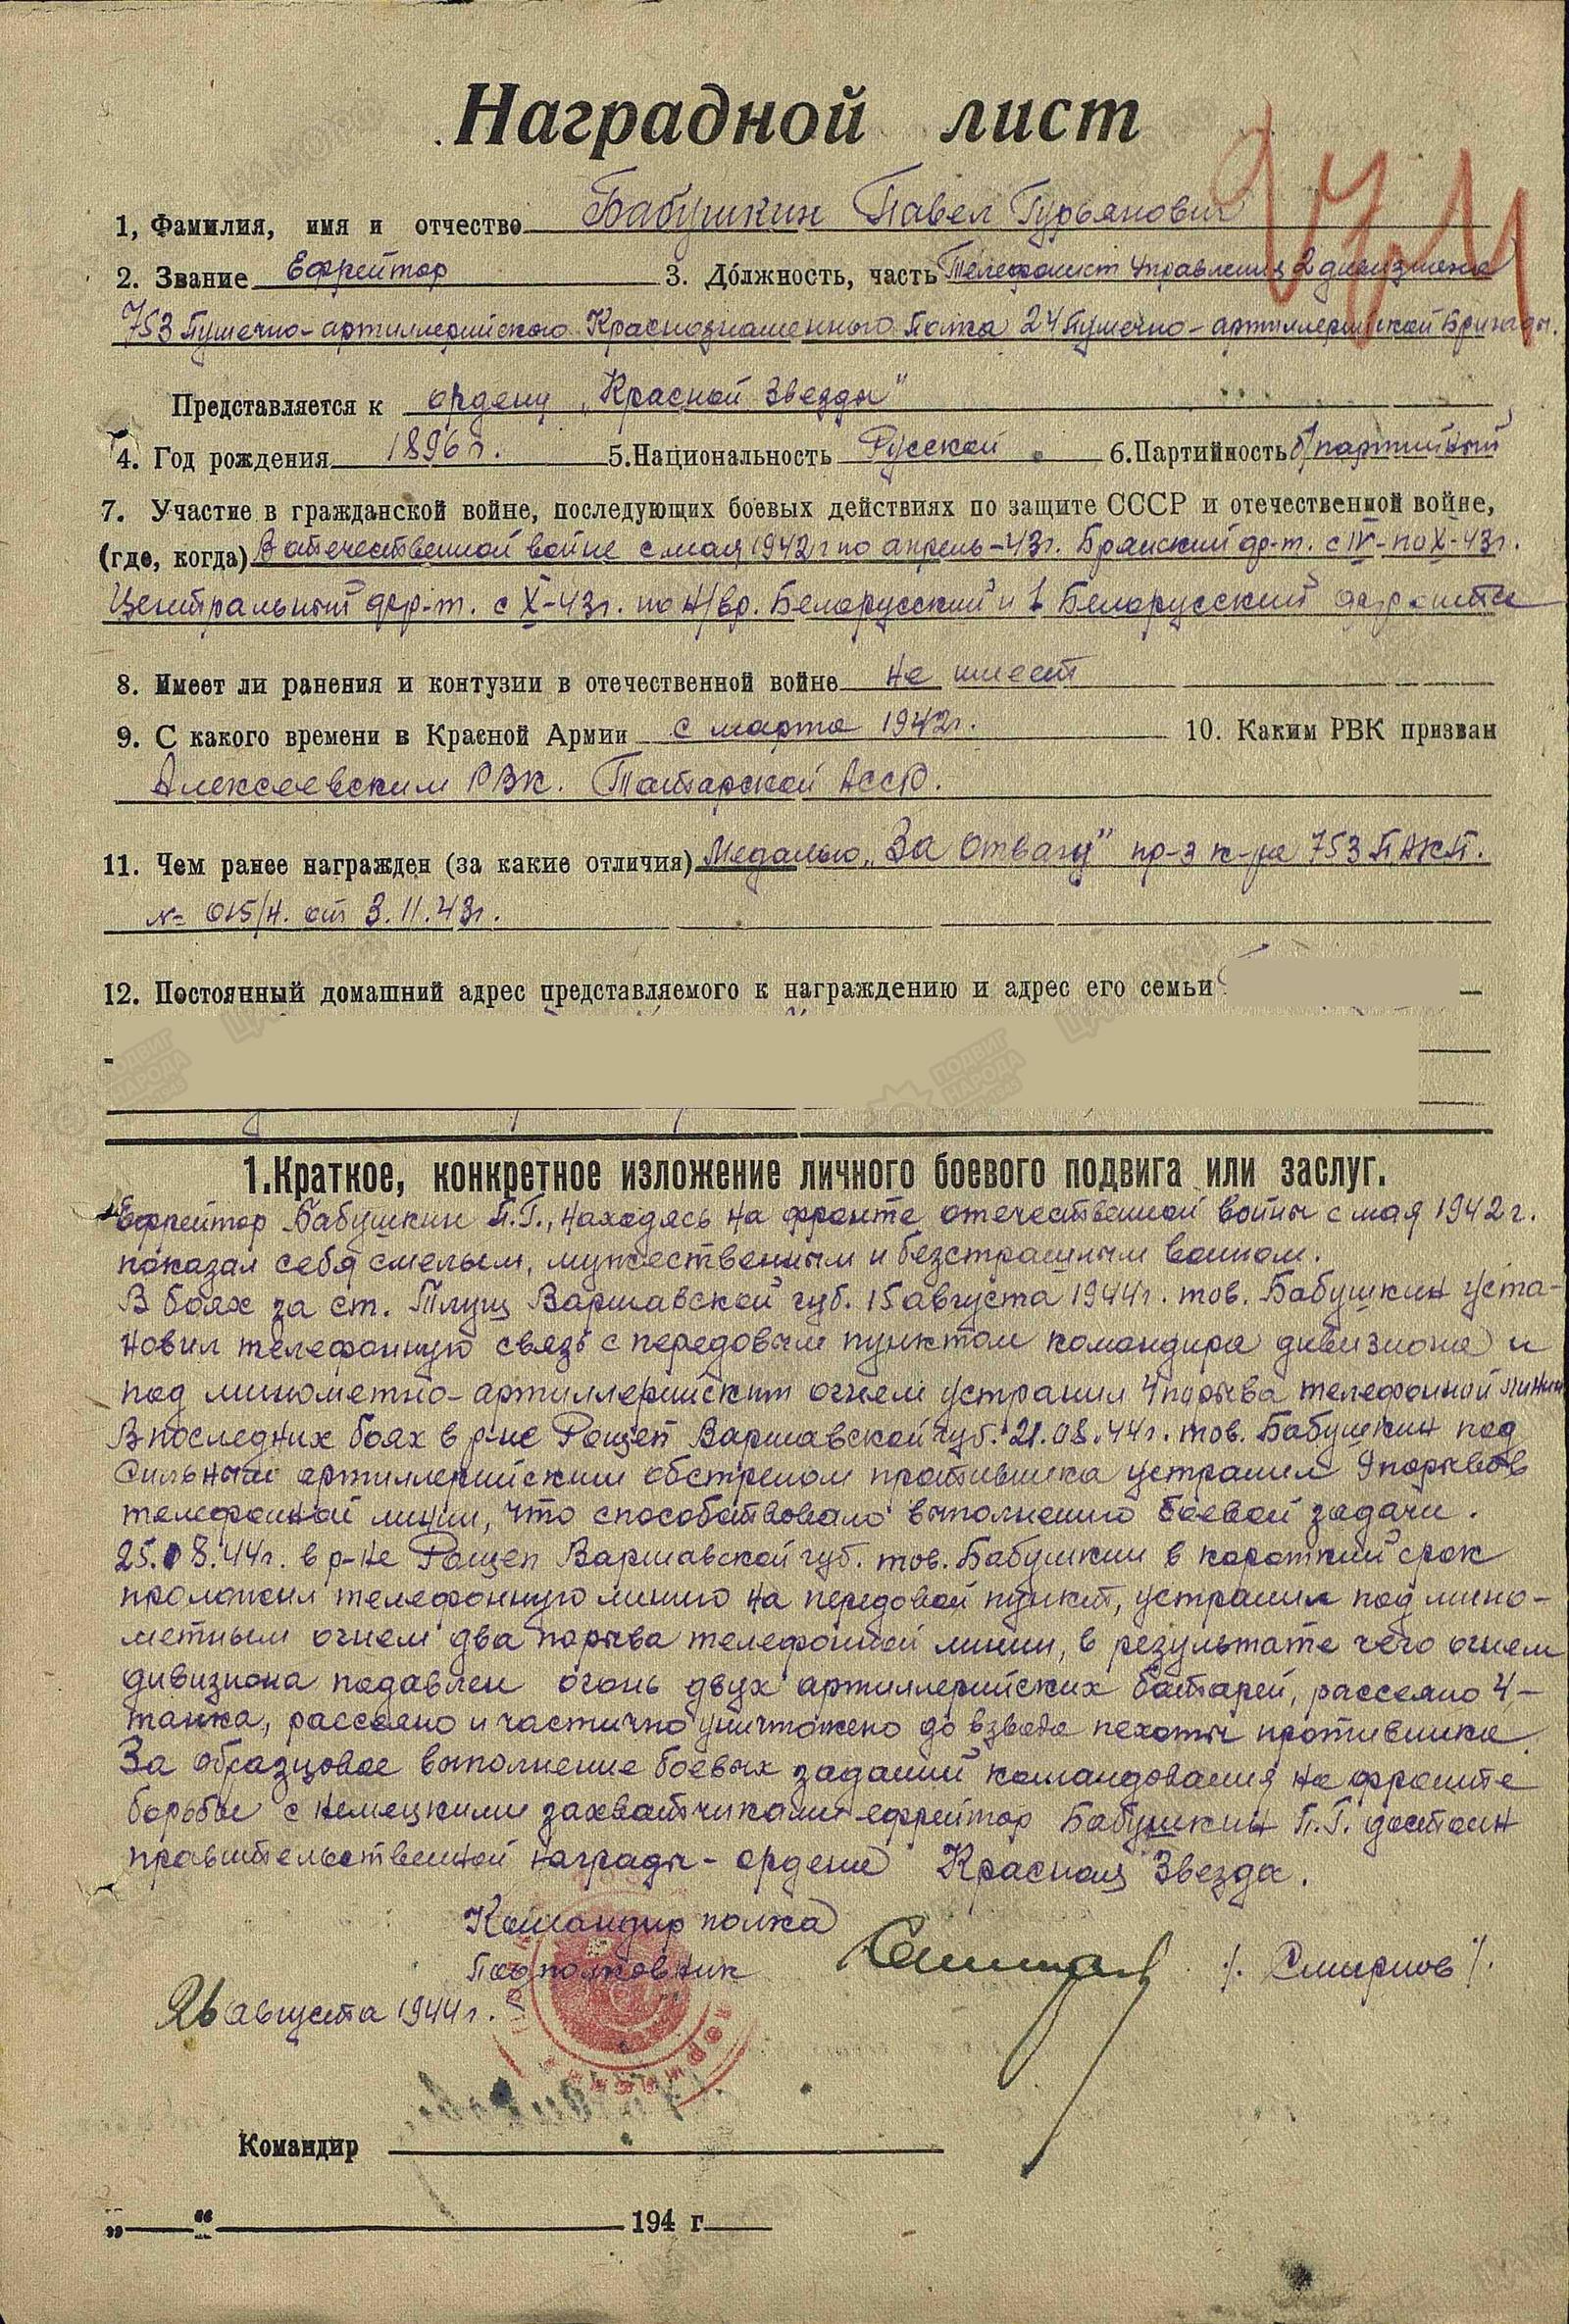 Наградной лист
1, Фамилия, имя и отчество Бабушкин Павел Гурьянович
2. Звание Ефрейтор 3. Должность, часть Телефонист управления 2 дивизиона
753 Пушечно-артиллерийского Краснознаменного Полка 24 Пушечно-артиллерийской Бригады.
Представляется к ордену „Красной Звезды"
4. Год рождения 1896 г. 5.Национальность Русской 6.Партийность б/партийный
7. Участие в гражданской войне, последующих боевых действиях по защите СССР и отечественной войне,
(где, когда) В отечественной войне с мая 1942 г по апрель-43г. Брянский фр-т. с IV-по X-43г.
Центральный фр-т. с X-43г. по н/вр. Белорусский и 1 Белорусский фронты
8. Имеет ли ранения и контузии в отечественной войне не имеет
9. С какого времени в Красной Армии с марта 1942г. 10. Каким РВК призван
Алексеевским РВК. Татарской АССР.
11. Чем ранее награжден (за какие отличия) Медалью „За Отвагу" пр-з к-ра 753 ПАКП.
№ 015/н. от 3.11.43г.
12. Постоянный домашний адрес представляемого к награждению и адрес его семьи
1.Краткое, конкретное изложение личного боевого подвига или заслуг.
Ефрейтор Бабушкин П.Г., находясь на фронте отечественной войны с мая 1942 г.
показал себя смелым, мужественным и безстрашным воином.
В боях за ст. Тлущ Варшавской губ. 15 августа 1944г. тов. Бабушкин уста-
новил телефонную связь с передовым пунктом командира дивизиона и
под минометно-артиллерийским огнем устранил 4 порыва телефонной линии
В последних боях в р-не Рощеп Варшавской губ. 21.08.44г. тов. Бабушкин под
сильным артиллерийским обстрелом противника устранил 9 порывов
телефонной линии, что способствовало выполнению боевой задачи.
25.08.44г. в р-не Рощеп Варшавской губ. тов. Бабушкин в короткий срок
проложил телефонную линию на передовой пункт, устранил под мино-
метным огнем два порыва телефонной линии, в результате чего огнем
дивизиона подавлен огонь двух артиллерийских батарей, рассеяно 4-
танка, рассеяно и частично уничтожено до взвода пехоты противника.
За образцовое выполнение боевых заданий командования на фронте
борьбы с немецкими захватчиками ефрейтор Бабушкин П.Г. достоин
правительственной награды - ордена Красная Звезда.
Командир полка
Подполковник /. Смирнов /.
26 августа 1944 г.
Командир
„ “ 194 г
ПОДВИГ НАРОДА
ПОДВИГ НАРОДА